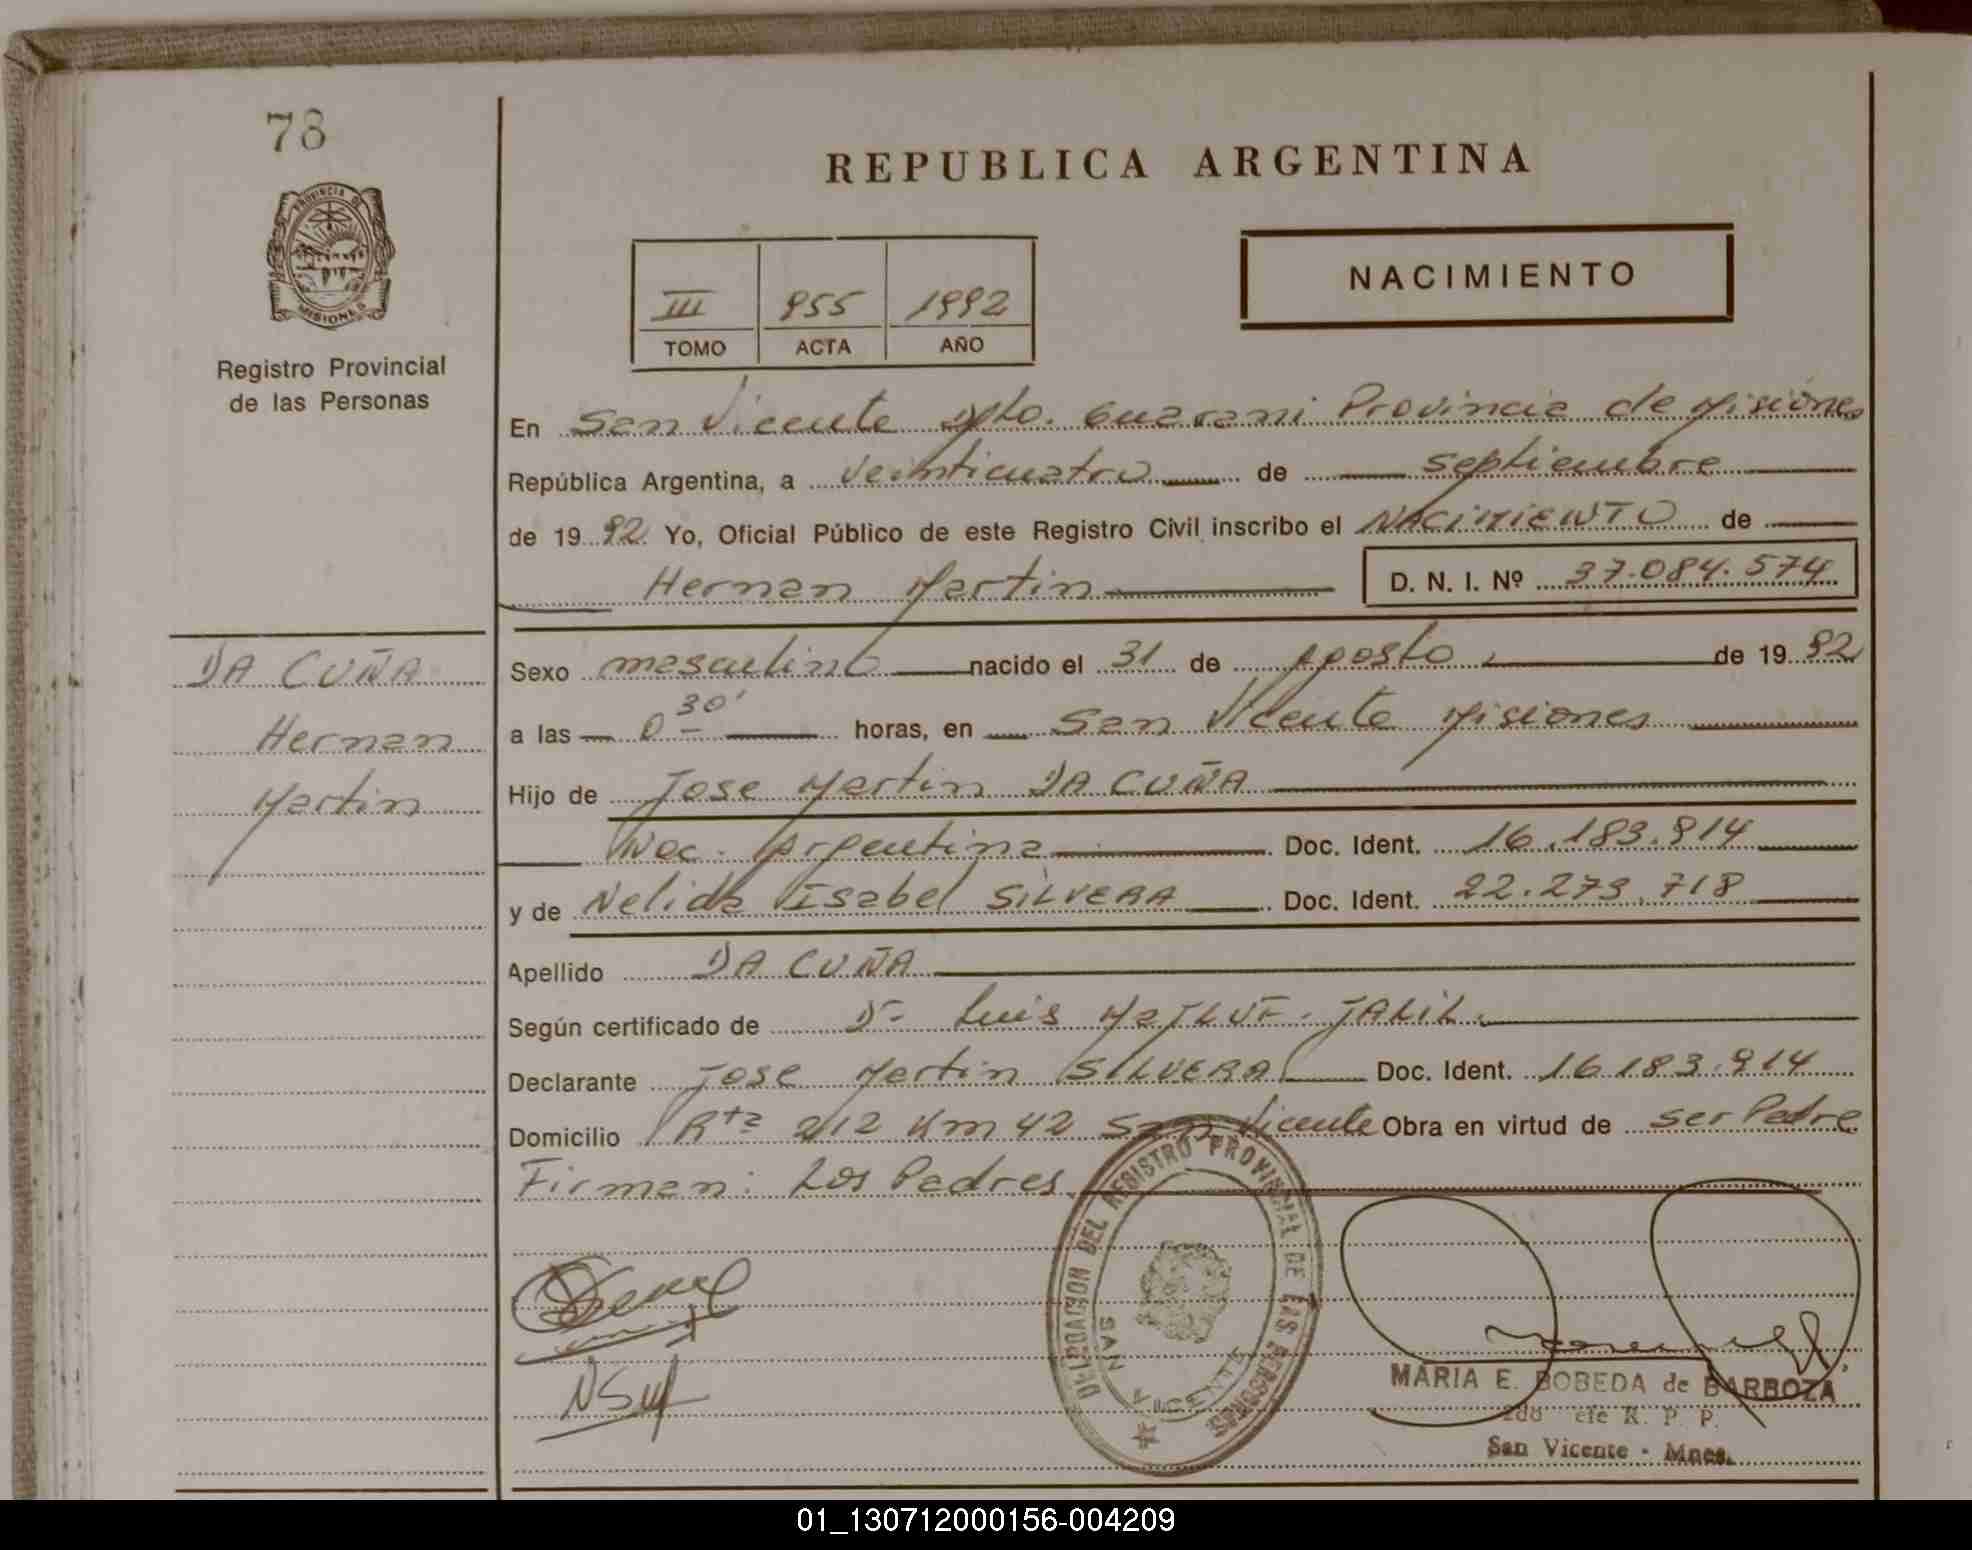 78
PROVINCIA DE
MISIONES
Registro Provincial
de las Personas
REPUBLICA ARGENTINA
III 955 1992
TOMO ACTA AÑO
NACIMIENTO
En San Vicente Dpto. Guarani Provincia de Misiones
República Argentina, a veinticuatro de septiembre
de 19 92 Yo, Oficial Público de este Registro Civil inscribo el NACIMIENTO de
Hernan Martin D. N. I. Nº 37.084.574
DA CUÑA
Hernan
Martin
Sexo masculino nacido el 31 de Agosto de 19 92
a las 0 30' horas, en San Vicente Misiones
Hijo de Jose Martin DA CUÑA
Nac. Argentina Doc. Ident. 16.183.914
y de Nelida Isabel SILVERA Doc. Ident. 22.273.718
Apellido DA CUÑA
Según certificado de Dr. Luis JALIL.
Declarante Jose Martin SILVERA Doc. Ident. 16.183.914
Domicilio Rta 212 Km 42 San Vicente Obra en virtud de ser Padre
Firman: Los Padres
DELEGACION DEL REGISTRO PROVINCIAL DE LAS PERSONAS
SAN VICENTE
MARIA E. BOBEDA de BARBOZA
2do efe R. P. P.
San Vicente - Mnes.
01_130712000156-004209